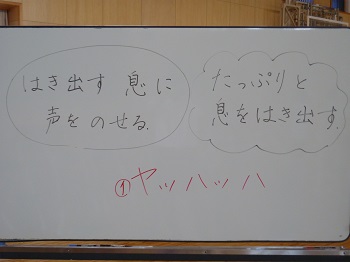 はき出す 息に
声を のせる.
たっぷりと
息をはき出す.
①ヤッハッハ